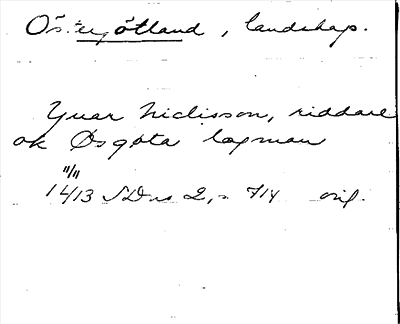 Östergötland, landskap.
Yuar Niclisson, riddare
ok Øsgöta lagman
11/11
1413 SDns 2, s 714 orig.